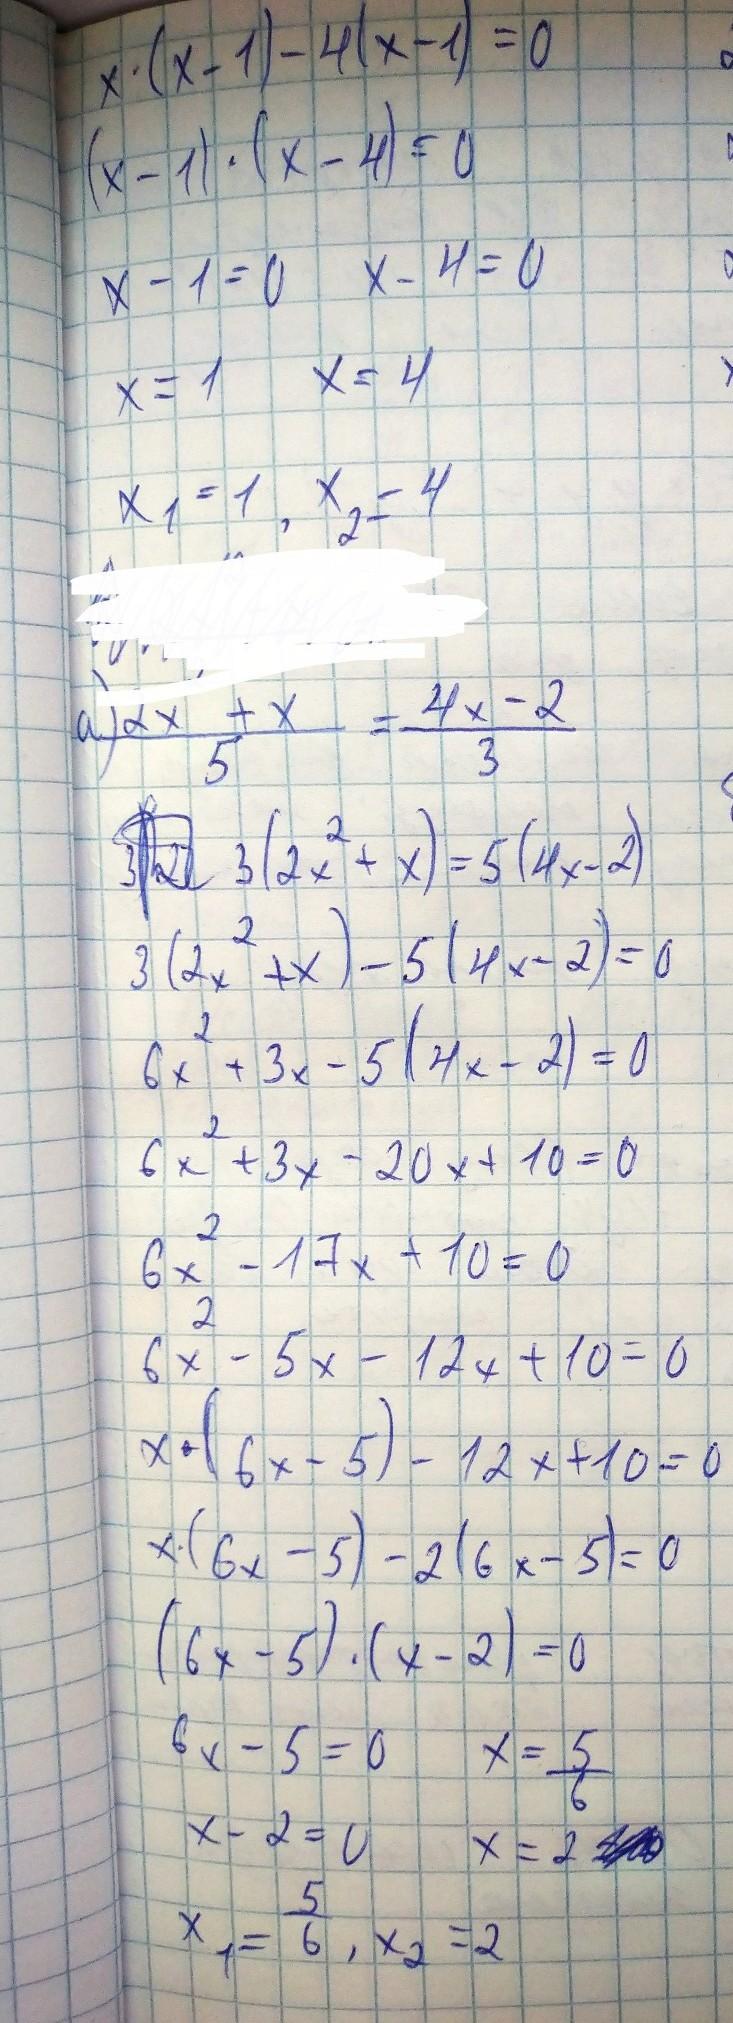 x·(x-1)-4(x-1)=0
(x-1)·(x-4)=0
x-1=0 x-4=0
x=1 x=4
x₁=1, x₂=4
а) (2x + x)/5 = (4x-2)/3
3(2x²+x)=5(4x-2)
3(2x²+x)-5(4x-2)=0
6x²+3x-5(4x-2)=0
6x²+3x-20x+10=0
6x²-17x+10=0
6x²-5x-12x+10=0
x·(6x-5)-12x+10=0
x·(6x-5)-2(6x-5)=0
(6x-5)·(x-2)=0
6x-5=0 x=5/6
x-2=0 x=2
x₁=5/6, x₂=2